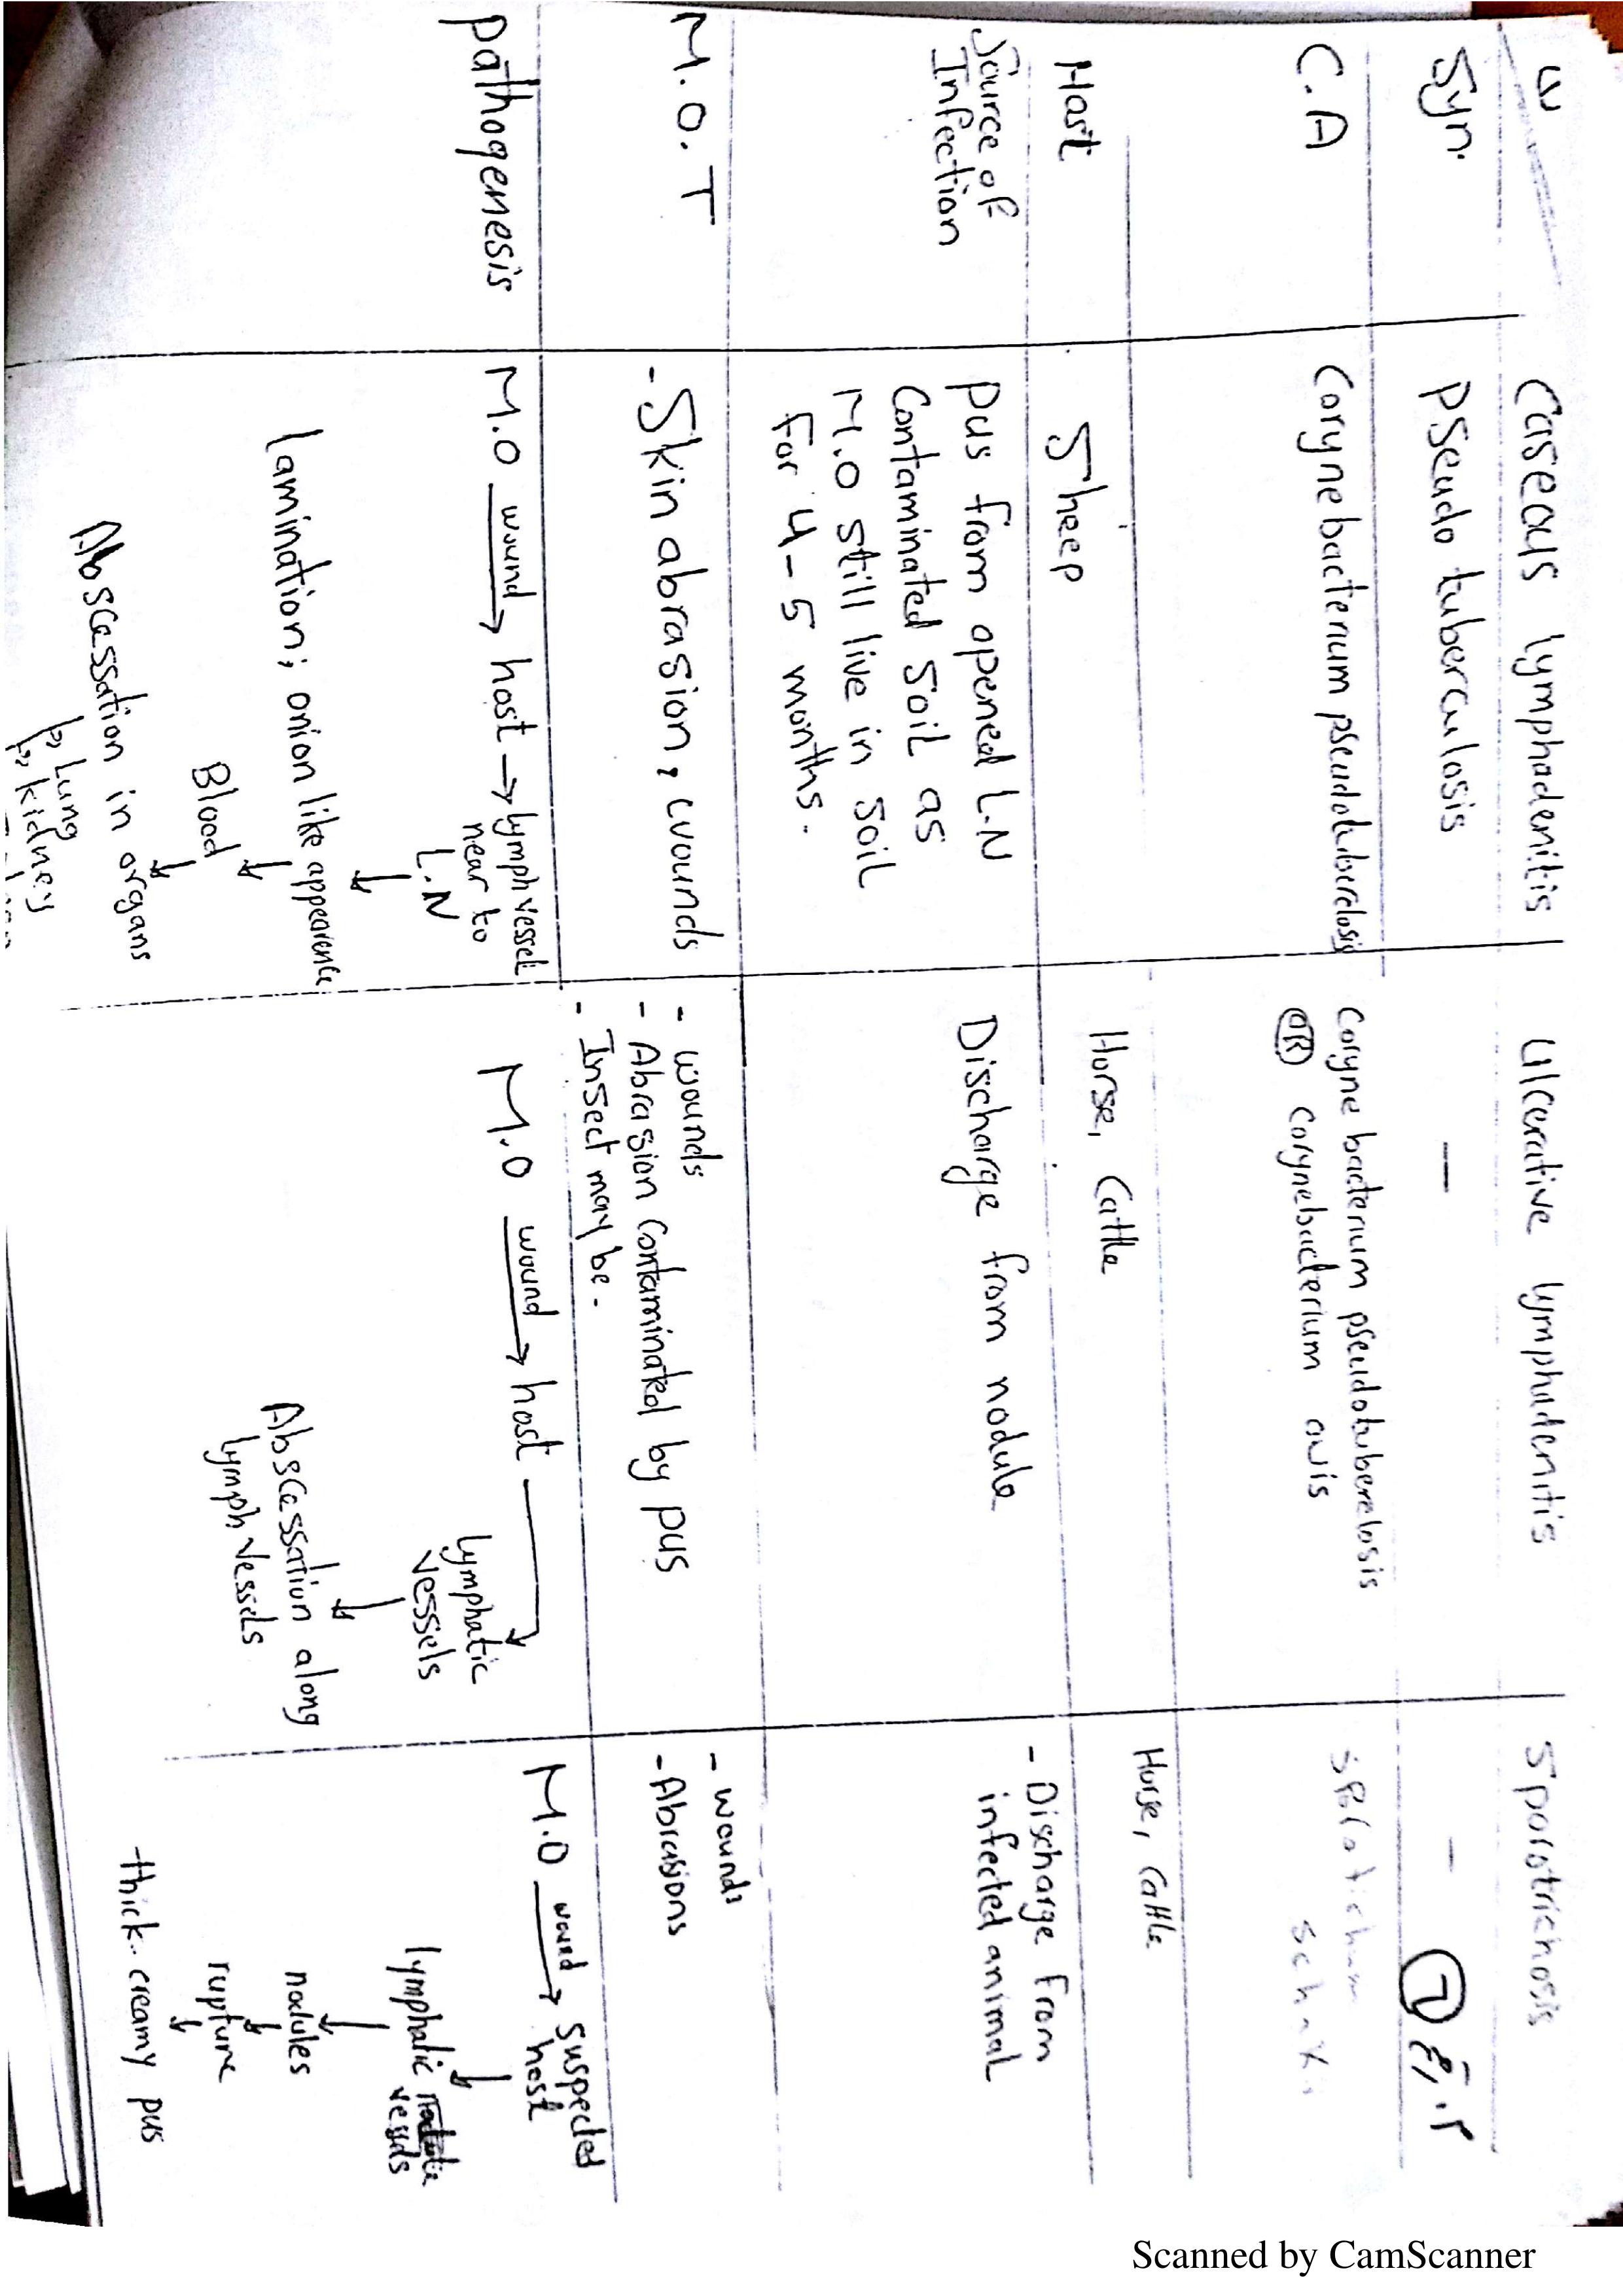 Caseous lymphadenitis
Ulcerative lymphadenitis
Sporotrichosis
Syn.
Pseudo tuberculosis
—
-
C.A
Corynebacterium pseudotuberclosis
Coryne bacterium pseudotuberclosis
OR Corynebacterium ovis
Host
Sheep
Horse, Cattle
Horse, Cattle
Source of
Infection
pus from opened L.N
Contaminated Soil as
M.O still live in Soil
For 4-5 months.
Discharge from nodule
- Discharge from
infected animal
M.O.T
- Skin abrasion, wounds
- wounds
- Abrasion contaminated by pus
- Insect may be.
- wounds
- Abrasions
Pathogenesis
M.O wound → host → lymph vessel
near to
L.N
↓
lamination; onion like appearence
↓
Blood
↓
Abscessation in organs
↳ Lung
↳ kidney
M.O wound → host →
lymphatic
vessels
↓
Abscessation along
lymph vessels
M.O wound → suspected
host
↓
lymphatic
vessels
↓
nodules
↓
rupture
↓
thick creamy pus
Scanned by CamScanner